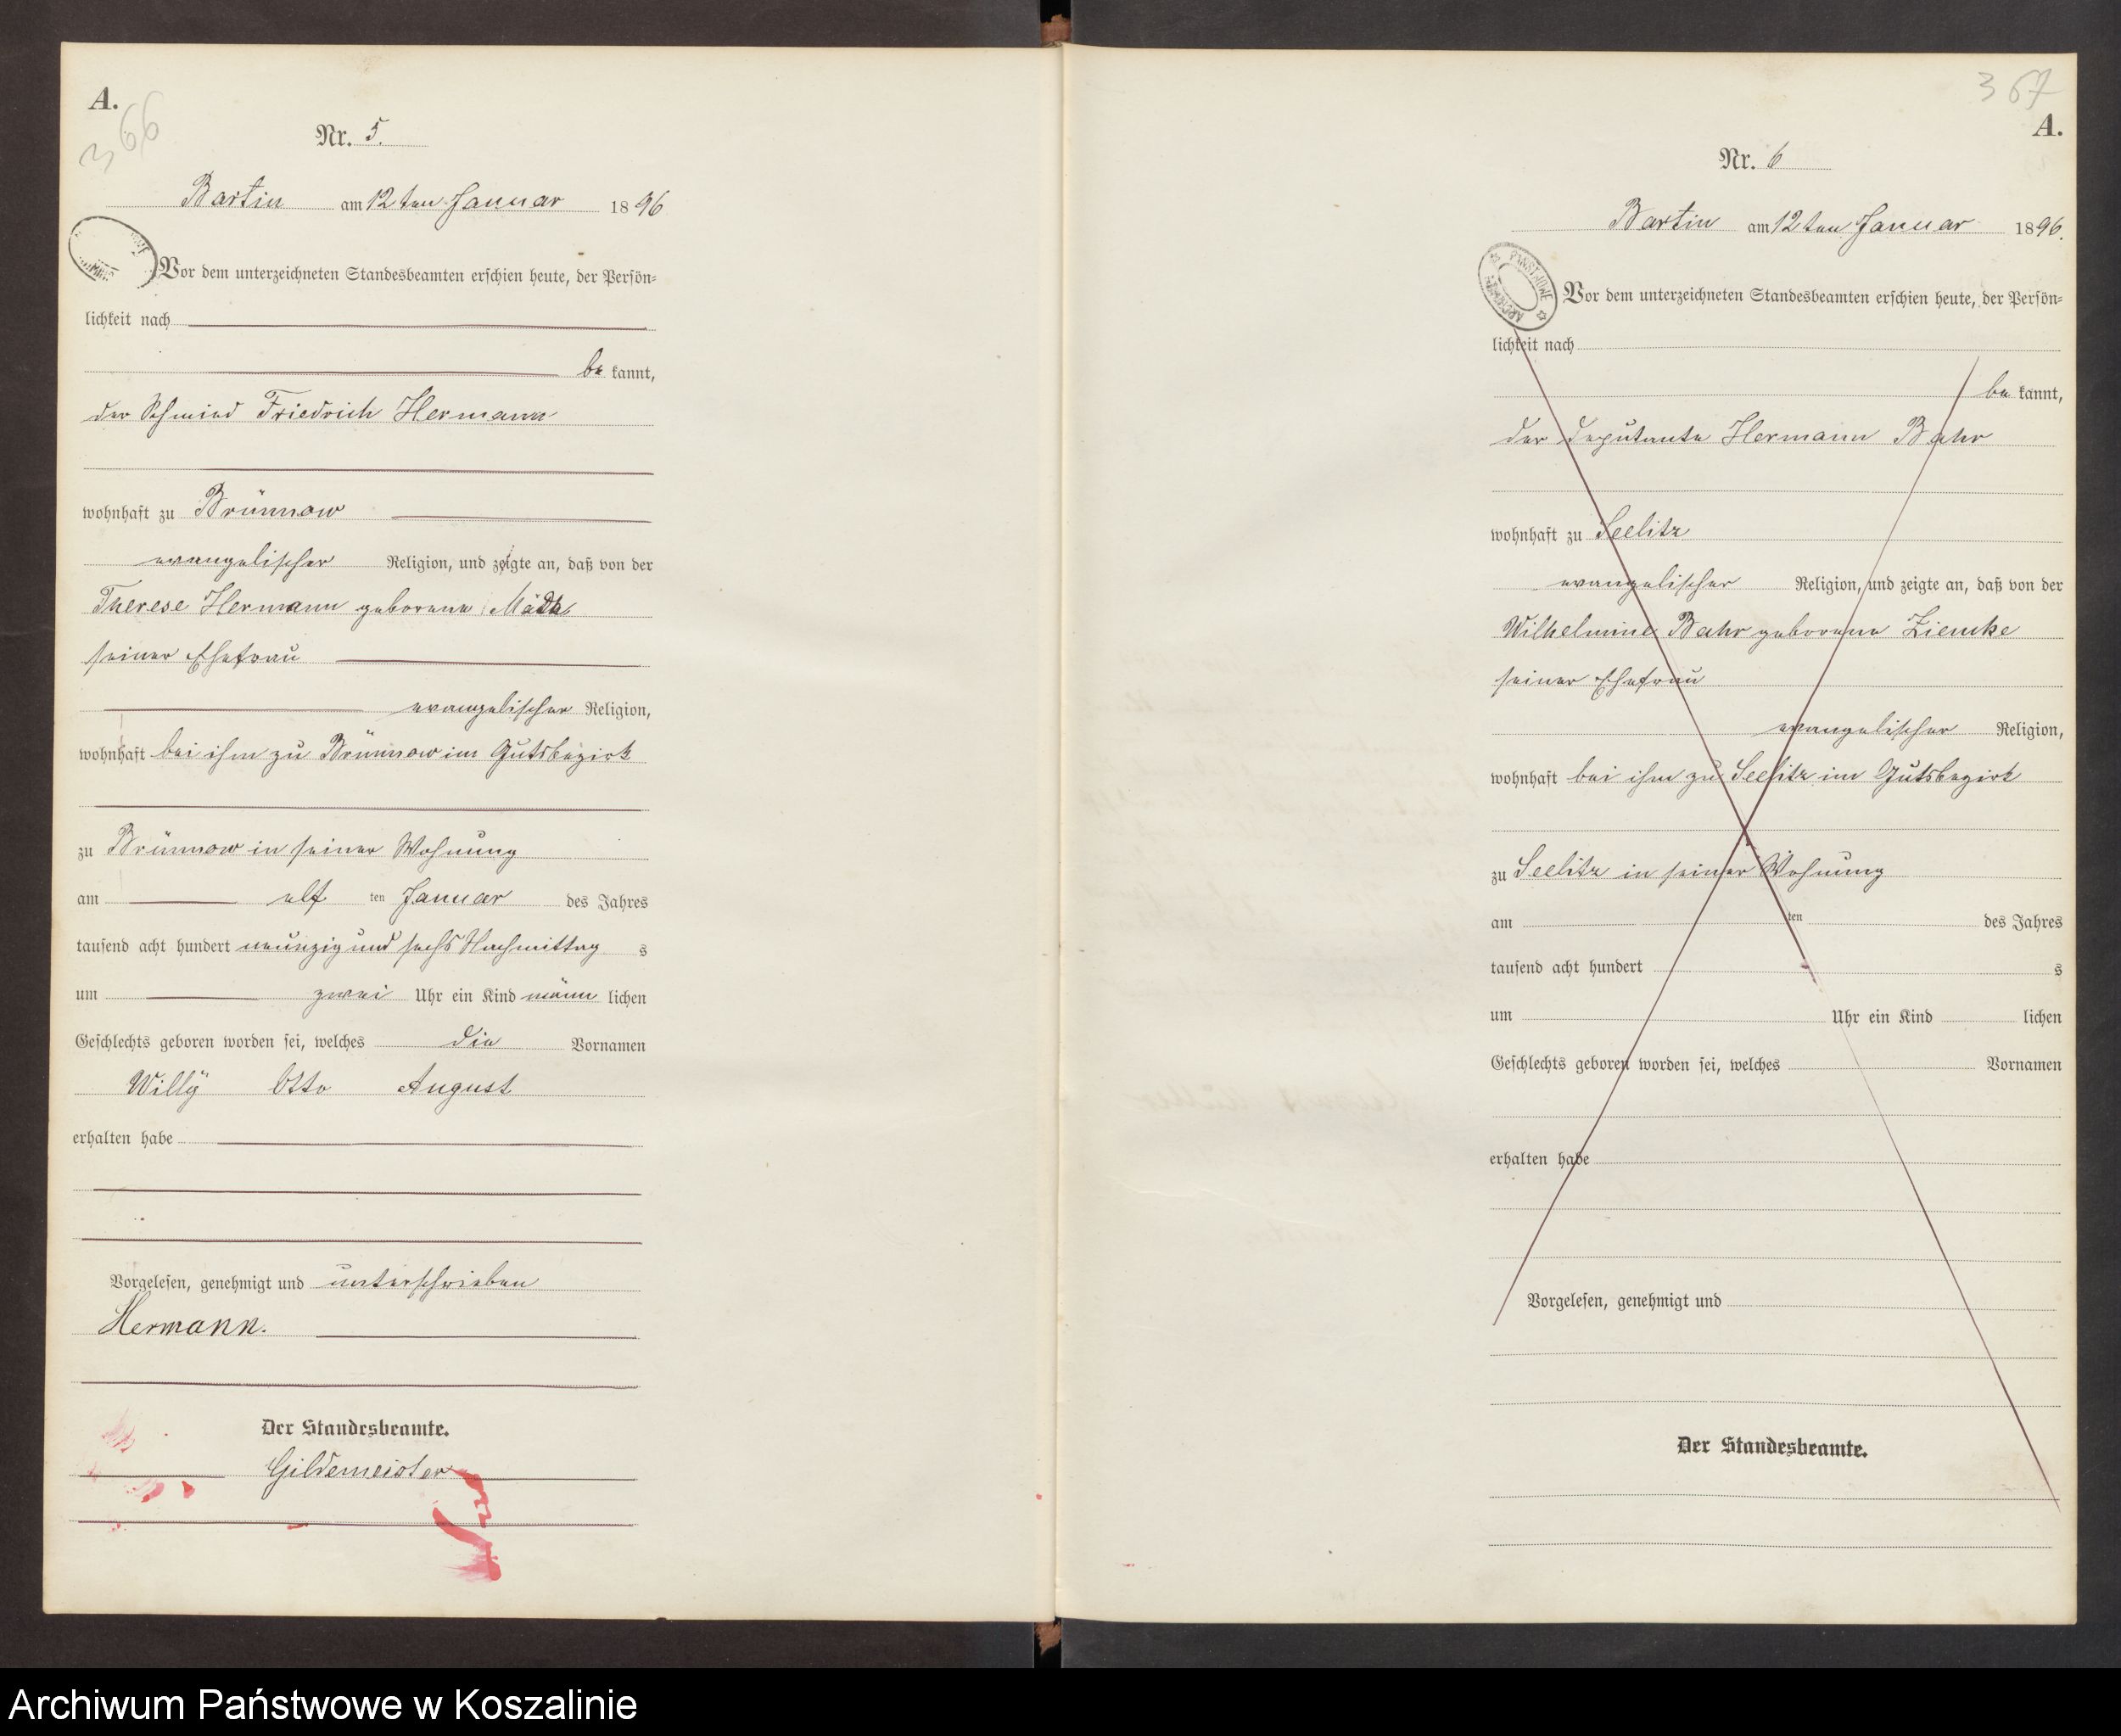 A.
366
Nr. 5.
Bartin am 12 ten Januar 1896
Vor dem unterzeichneten Standesbeamten erschien heute, der Persön-
lichkeit nach
be kannt,
der Schmied Friedrich Hermann
wohnhaft zu Brünnow
evangelischer Religion, und zeigte an, daß von der
Therese Hermann geborene
seiner Ehefrau
evangelischer Religion,
wohnhaft bei ihm zu Brünnow im Gutsbezirk
zu Brünnow in seiner Wohnung
am elf ten Januar des Jahres
tausend acht hundert neunzig und sechs Nachmittag s
um zwei Uhr ein Kind männ lichen
Geschlechts geboren worden sei, welches die Vornamen
Willÿ Otto August
erhalten habe
Vorgelesen, genehmigt und unterschrieben
Hermann.
Der Standesbeamte.
Gildemeister
367
A.
Nr. 6
Bartin am 12 ten Januar 1896.
PAŃSTWOWE ARCHIWUM
Vor dem unterzeichneten Standesbeamten erschien heute, der Persön-
lichkeit nach
be kannt,
der Deputante Hermann Bahr
wohnhaft zu Seelitz
evangelischer Religion, und zeigte an, daß von der
Wilhelmine Bahr geborene Ziemke
seiner Ehefrau
evangelischer Religion,
wohnhaft bei ihm zu Seelitz im Gutsbezirk
zu Seelitz in seiner Wohnung
am ten des Jahres
tausend acht hundert s
um Uhr ein Kind lichen
Geschlechts geboren worden sei, welches Vornamen
erhalten habe
Vorgelesen, genehmigt und
Der Standesbeamte.
Archiwum Państwowe w Koszalinie